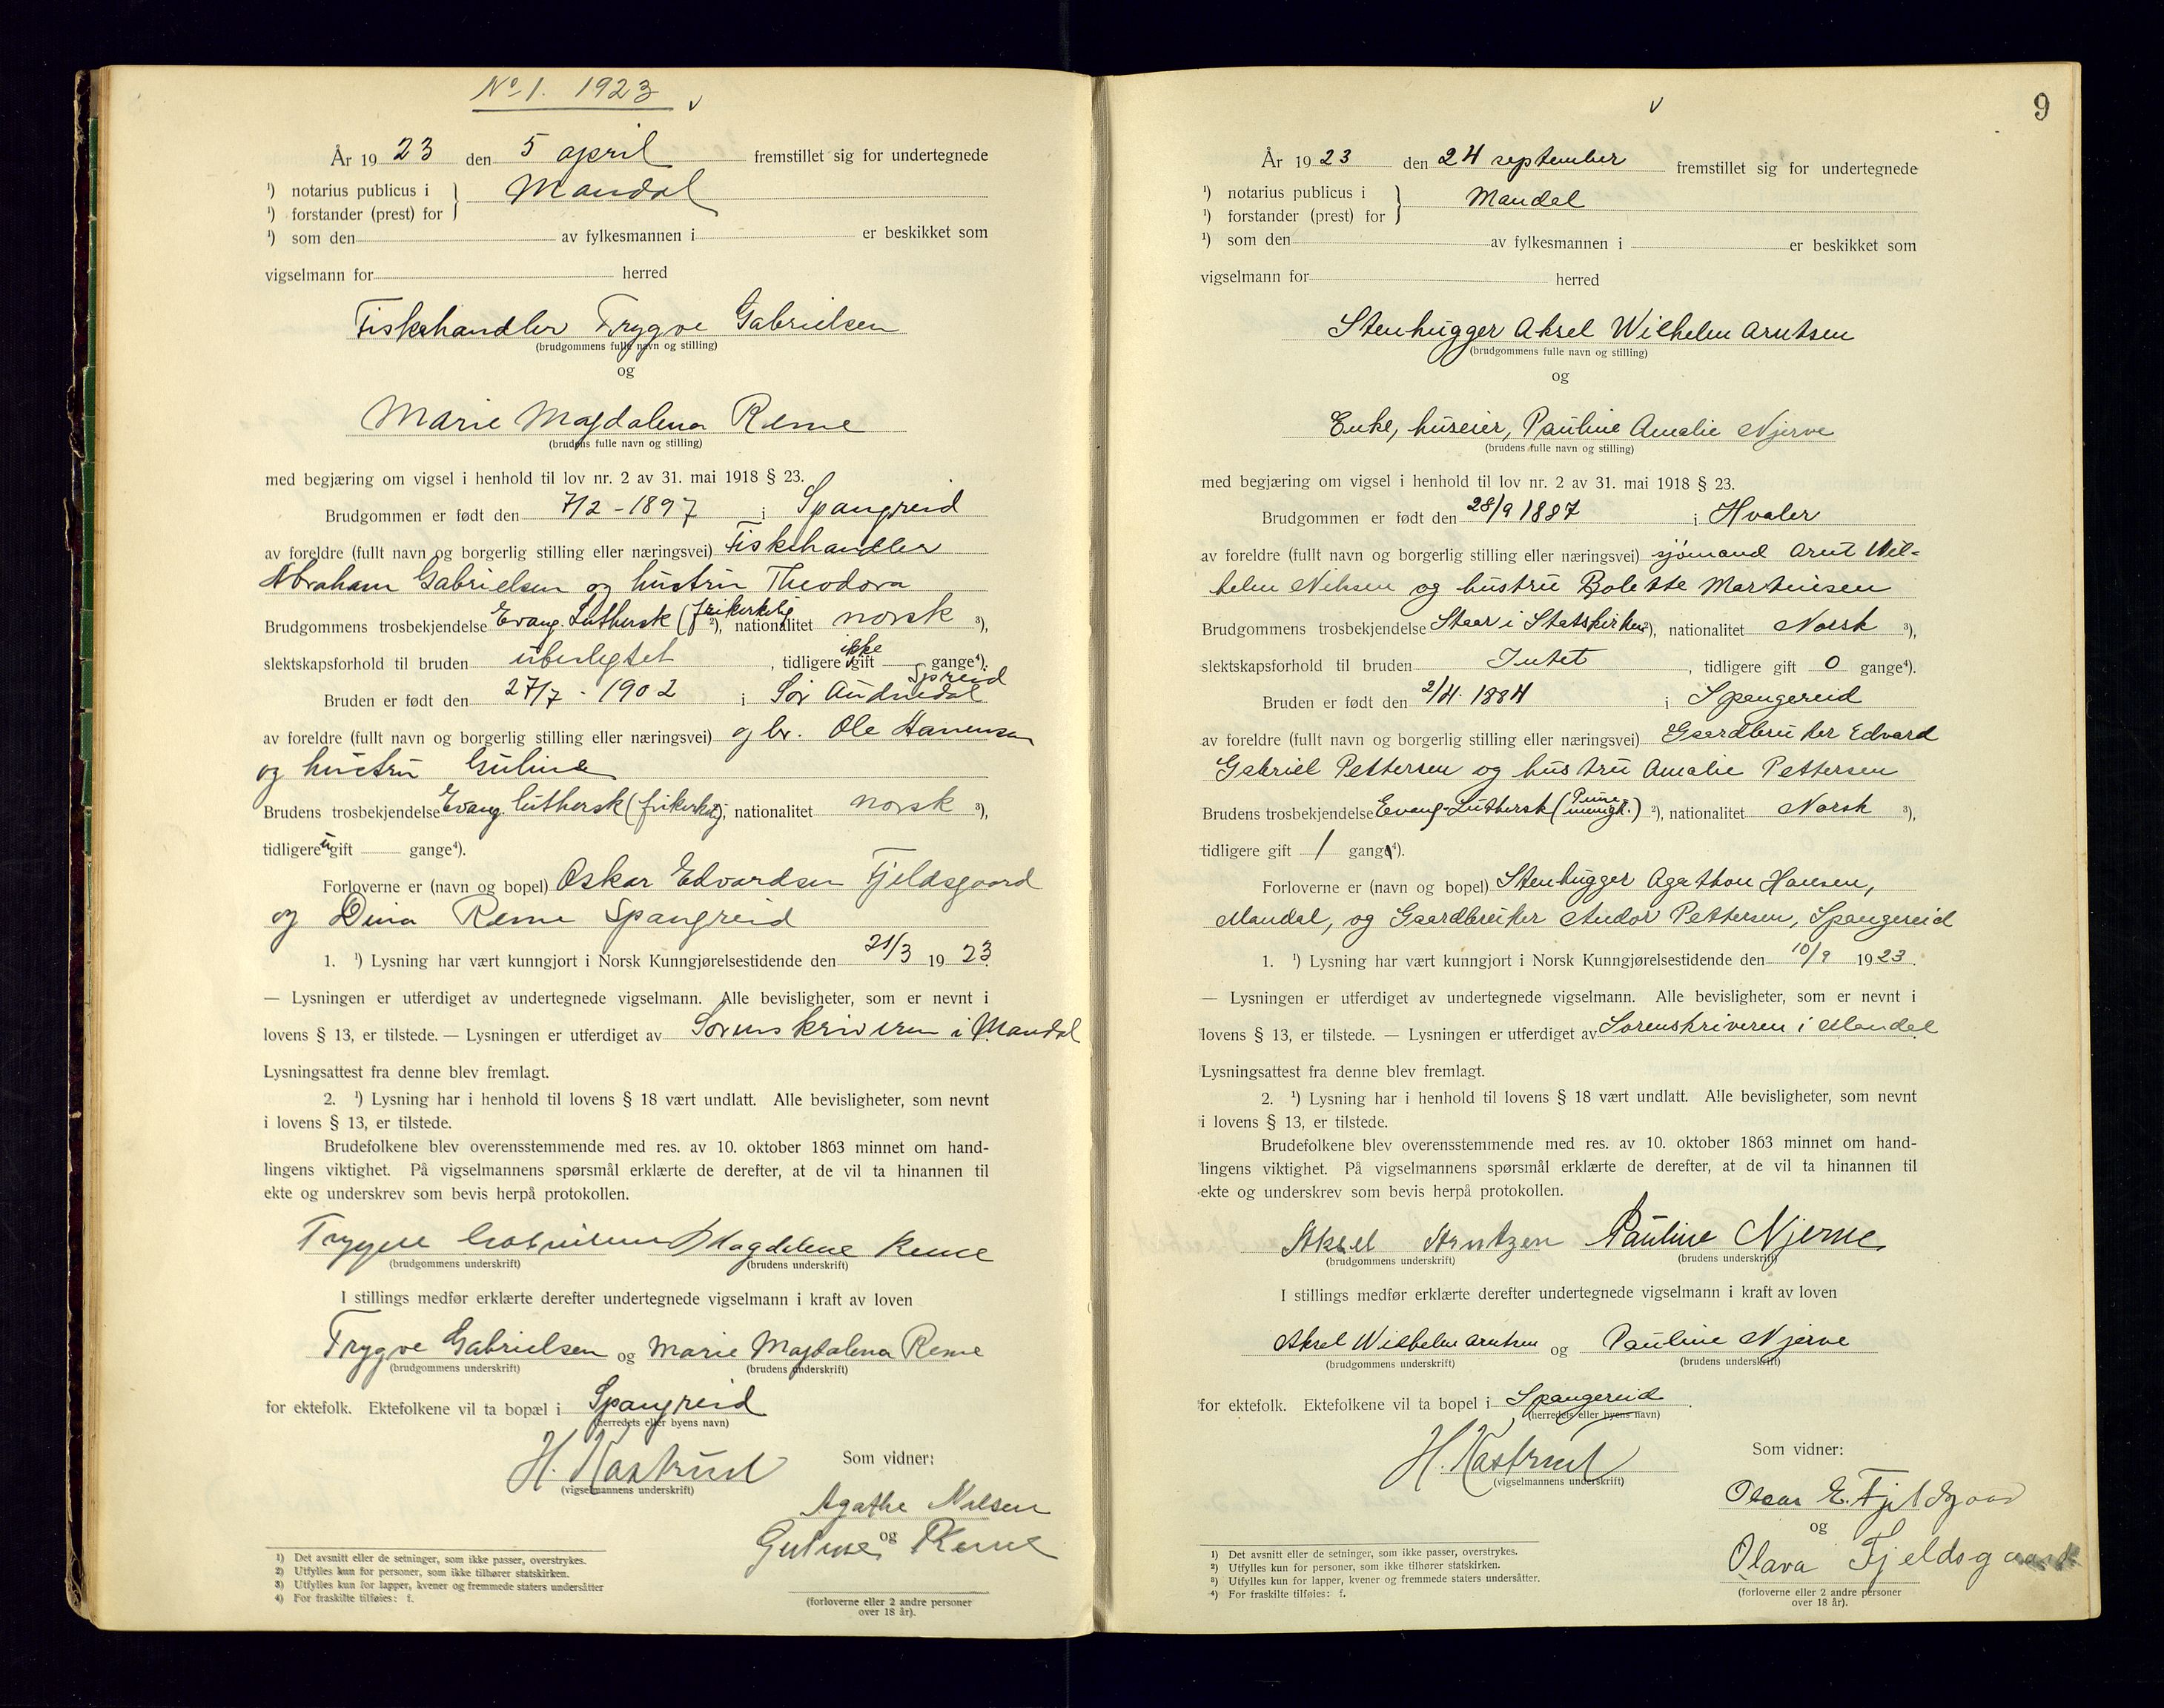 No 1. 1923 v
År 1923 den 5 april fremstillet sig for undertegnede
¹) notarius publicus i } Mandal
¹) forstander (prest) for
¹) som den av fylkesmannen i er beskikket som
vigselmann for herred
Fiskehandler Trygve Gabrielsen
(brudgommens fulle navn og stilling)
og
Marie Magdalena Reme
(brudens fulle navn og stilling)
med begjæring om vigsel i henhold til lov nr. 2 av 31. mai 1918 § 23.
Brudgommen er født den 7/2 - 1897 i Spangreid
av foreldre (fullt navn og borgerlig stilling eller næringsvei) Fiskehandler
Abraham Gabrielsen og hustru Theodora
Brudgommens trosbekjendelse Evang. Luthersk (frikirkelig ²), nationalitet norsk ³),
slektskapsforhold til bruden ubeslegtet , tidligere ikke gift gange⁴).
Bruden er født den 27/7 - 1902 i Sør Audnedal Spreid
av foreldre (fullt navn og borgerlig stilling eller næringsvei) gbr. Ole Hanensen
og hustru Guline
Brudens trosbekjendelse Evang. luthersk (frikirkel), nationalitet norsk ³),
tidligere ugift gange⁴).
Forloverne er (navn og bopel) Oskar Edvardsen Fjeldsgaard
og Dina Reme Spangreid
1. ¹) Lysning har vært kunngjort i Norsk Kunngjørelsestidende den 21/3 1923.
— Lysningen er utferdiget av undertegnede vigselmann. Alle bevisligheter, som er nevnt i
lovens § 13, er tilstede. — Lysningen er utferdiget av Sorenskriveren i Mandal
Lysningsattest fra denne blev fremlagt.
2. ¹) Lysning har i henhold til lovens § 18 vært undlatt. Alle bevisligheter, som nevnt
i lovens § 13, er tilstede.
Brudefolkene blev overensstemmende med res. av 10. oktober 1863 minnet om hand-
lingens viktighet. På vigselmannens spørsmål erklærte de derefter, at de vil ta hinannen til
ekte og underskrev som bevis herpå protokollen.
Trygve Gabrielsen Magdalene Reme
(brudgommens underskrift) (brudens underskrift)
I stillings medfør erklærte derefter undertegnede vigselmann i kraft av loven
Trygve Gabrielsen og Marie Magdalena Reme
(brudgommens underskrift) (brudens underskrift)
for ektefolk. Ektefolkene vil ta bopæl i Spangreid
(herredets eller byens navn)
H. Kastrud Som vidner:
(vigselmannens underskrift)
Agathe Nilsen
og
Guline Reme
¹) Det avsnitt eller de setninger, som ikke passer, overstrykes.
²) Utfylles kun for personer, som ikke tilhører statskirken.
³) Utfylles kun for lapper, kvener og fremmede staters undersåtter
⁴) For fraskilte tilføies: f.
(forloverne eller 2 andre personer
over 18 år).
v 9
År 1923 den 24 september fremstillet sig for undertegnede
¹) notarius publicus i } Mandal
¹) forstander (prest) for
¹) som den av fylkesmannen i er beskikket som
vigselmann for herred
Stenhugger Aksel Wilhelm Arntsen
(brudgommens fulle navn og stilling)
og
Enke, huseier, Pauline Amalie Njerve
(brudens fulle navn og stilling)
med begjæring om vigsel i henhold til lov nr. 2 av 31. mai 1918 § 23.
Brudgommen er født den 28/9 1887 i Hvaler
av foreldre (fullt navn og borgerlig stilling eller næringsvei) sjømand Arnt Wil-
helm Nilsen og hustru Bolette Martinisen
Brudgommens trosbekjendelse Staar i Statskirken ²), nationalitet Norsk ³),
slektskapsforhold til bruden Intet , tidligere gift 0 gange⁴).
Bruden er født den 2/4. 1884 i Spangereid
av foreldre (fullt navn og borgerlig stilling eller næringsvei) Gaardbruker Edvard
Gabriel Pettersen og hustru Amalie Pettersen
Brudens trosbekjendelse Evang.-Luthersk ( menigh.) ²), nationalitet Norsk ³),
tidligere gift 1 gang⁴).
Forloverne er (navn og bopel) Stenhugger Agathon Hansen,
Mandal, og Gaardbruker Andor Pettersen, Spangereid
1. ¹) Lysning har vært kunngjort i Norsk Kunngjørelsestidende den 10/9 1923.
— Lysningen er utferdiget av undertegnede vigselmann. Alle bevisligheter, som er nevnt i
lovens § 13, er tilstede. — Lysningen er utferdiget av Sorenskriveren i Mandal.
Lysningsattest fra denne blev fremlagt.
2. ¹) Lysning har i henhold til lovens § 18 vært undlatt. Alle bevisligheter, som nevnt
i lovens § 13, er tilstede.
Brudefolkene blev overensstemmende med res. av 10. oktober 1863 minnet om hand-
lingens viktighet. På vigselmannens spørsmål erklærte de derefter, at de vil ta hinannen til
ekte og underskrev som bevis herpå protokollen.
Aksel Arntzen Pauline Njerve
(brudgommens underskrift) (brudens underskrift)
I stillings medfør erklærte derefter undertegnede vigselmann i kraft av loven
Aksel Wilhelm Arntsen og Pauline Njerve
(brudgommens underskrift) (brudens underskrift)
for ektefolk. Ektefolkene vil ta bopel i Spangereid.
(herredets eller byens navn)
H. Kastrud Som vidner:
(vigselmannens underskrift)
Oscar E. Fjeldsgaard
og
Olava Fjeldsgaard
¹) Det avsnitt eller de setninger, som ikke passer, overstrykes.
²) Utfylles kun for personer, som ikke tilhører statskirken.
³) Utfylles kun for lapper, kvener og fremmede staters undersåtter.
⁴) For fraskilte tilføies: f.
(forloverne eller 2 andre personer
over 18 år).